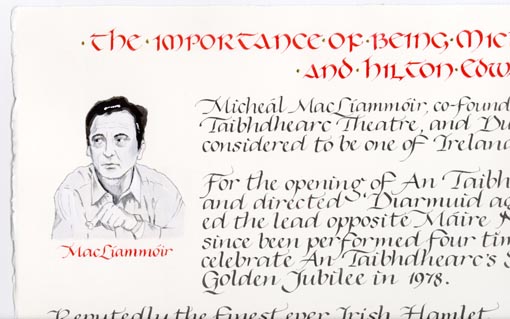 ·The·Importance·of·Being·Mic
·and·Hilton·Edw
Micheál MacLíammóir, co-found
Taibhdhearc Theatre, and Du
considered to be one of Ireland
For the opening of An Taibh
and directed Diarmuid ag
ed the lead opposite Máire
since been performed four tim
celebrate An Taibhdhearc's
Golden Jubilee in 1978.
MacLíammóir
Reputedly the finest ever Irish Hamlet